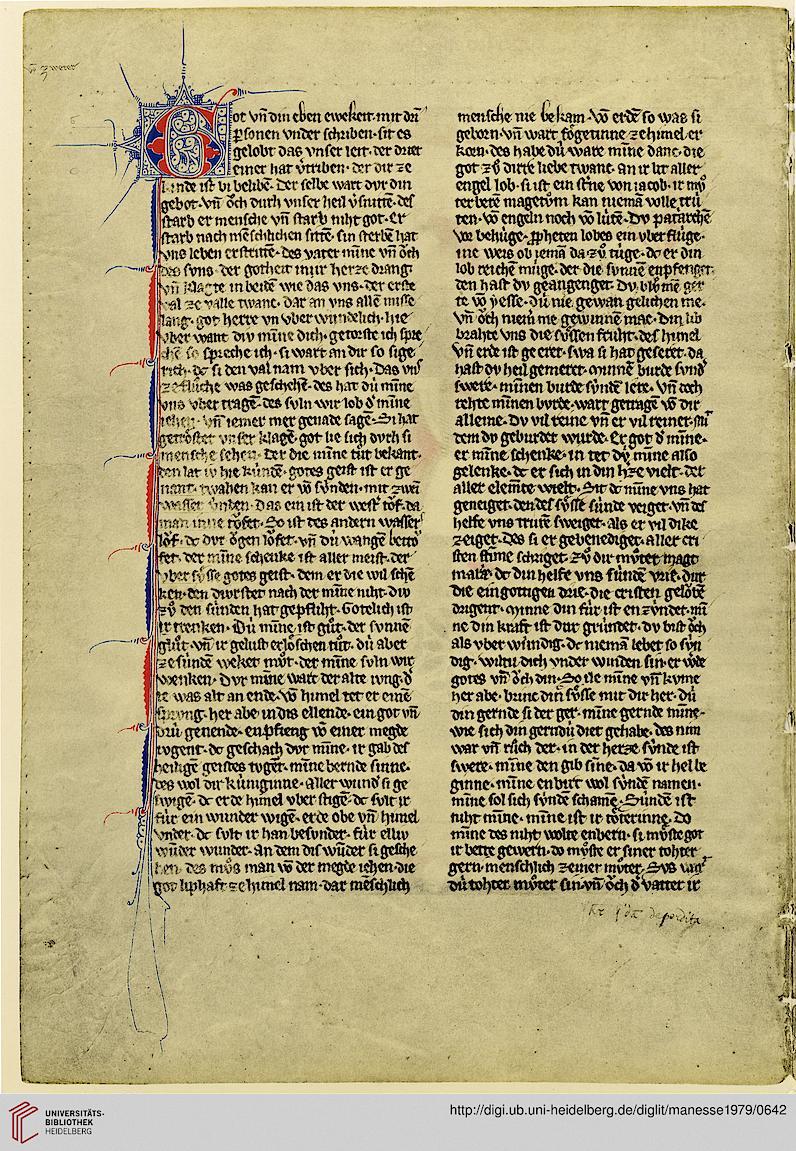 Got vñ din eben ewekeit. mit drı̄
psonen vnder schriben. sit es
gelobt das vnser leit. der driet
einer hat v̾triben. der dir ze
kinde ist bi belibē. Der selbe wart dvr din
gebot. vñ ǒch durh vnser heil v̾snitē. des
starb er mensche vñ starb niht got. Er
starb nach mēschlichen sittē. sin sterbē hat
vns leben erstrittē. des vater mı̄ne vñ ǒch
des svns. der gotheit in ir herze drang
vñ klagte in beidē wie das vns. der erste
val ze valle twanc. dar an vns allē misse
lang. got herre vn vber wundelich. hie
vber want div mı̄ne dich. getorste ich spre
chē so spreche ich. si wart an dir so sige
rich. dc si den val nam vber sich. Das vns
ze flůche was geschehē. des hat dv̓ mı̄ne
vns vber tragē. des svln wir lob d̾ mı̄ne
iehen. vñ iemer mer genade sagē. Si hat
getrȯstet vnser klagē. got lie sich dvrh si
mensche sehen. Der die mı̄ne tůt bekant.
den lat
hie kündē. gotes geist ist er ge
nant. twahen kan er vō sv̓nden. mit zwei
das ein ist der west tǒf. da
man inne tǒfet. So ist des andern wasser
lǒf. dc dvr d' ǒgen lǒfet. vñ dv̓ wangē betrȯ
fet. der mı̄ne schenke ist aller meist. der
vber sv̓sse gotes geist. dem er die wil schē
ken. den dv̓rstet nach der mı̄ne niht. div
zů den sv̓nden hat gepfliht. Gotelich ist
ir trenken. Dv̓ mı̄ne ist gůt. der sv̓nne
glůt. vñ ir gelust erlȯschen tůt. dv̓ aber
ze sv̓nde weket můt. der mı̄ne svln wir
wenken. Dvr mı̄ne wart der alte ivng. d̾
ie was alt an ende. vō himel tet er einē
sprvng. her abe in dis ellende. ein got vñ
driı̄ genende. enpfieng vō einer megde
ivgent. dc geschach dvr mı̄ne. ir gab des
heiligē geistes tvgēt. mı̄ne bernde sinne.
des wol dir ku̓niginne. Aller wund̾ si ge
swigē. dc er de himel vber stigē. dc solt ir
fu̓r ein wunder wigē. erde obe vñ himel
vnder. dc svlt ir han besvnder. fu̓r ellu̓
wu̓der wunder. An dem dis wūder si gesche
hen. des můs man vō der megde iehen. die
got liphaft ze himel nam. dar mēschlich
mensche nie bekam. vō erdē so was si
geborn. vñ wart fȯgetinne ze himel er
korn. des habe dv̓ ware mı̄ne danc. die
got zů dirre liebe twanc. an ir lit aller
engel lob. si ist ein st̾ne von iacob. ir mů
ter berē magetům kan niemā volle trü
ten. vō engeln noch vō lütē. Dv patarchē
vor behu̓ge. p̱pheten lobes ein vber flu̓ge.
ine weis ob iemā da zů tu̓ge. dc er din
lob reichē mu̓ge. der die sv̓nnē enpfenget.
den hast dv geangenget. Dv blůmē ger
te vō yesse. du̓ nie gewan gelichen me.
vñ ǒch niem̄ me gewinnē mac. din lib
brahte vns die sv̓ssen fruht. des himel
vñ erde ist geeret. swa si hat geseret. da
hast dv heil gemeret. Mı̄nnē burde sv̓nd̾
swere. mı̄nnen burde sv̓ndē lere. vñ doch
rehte mı̄nen bvrde. wart getragē vō dir
alleine. Dv vil reine vñ er vil reiner. sı̄t
dem dv geburdet wurde. Er got d̾ mı̄ne.
er mı̄ne schenke. in tet dv̓ mı̄ne also
gelenke. dc er sich in din h̾ze vielt. der
aller elemēte wielt. Sit dc mı̄ne vns hat
geneiget. den des sv̓sse sünde veiget. vñ des
helfe vns tru̓te sweiget. als er vil dike
zeiger. Des si er gebenediger. aller cri
sten stime schriget. zů dir můter magt
maria. dc din helfe vns sünden vrie. dur
die eingȯttigen drie. die cristen gelȯbē
drigent. Minne din für ist enzündet. mı̄
ne din kraft ist dur gründet. dv bist ǒch
als vber wūndig. dc niemā lebet so sv̓n
dig. wiltu dich vnder winden sin. er w̾de
gotes vñ ǒch din. So ile mı̄ne vñ kvme
her abe. bring din sv̓sse mit dir her. du̓
din gernde si der ger. mı̄ne gernde mı̄ne.
wie sich din gernd̾ diet gehabe. des nim
war vñ růch der. in der herze sv̓nde ist
swere. mı̄ne den gib sine. da vō ir hel be
ginne. mı̄ne enbirt wol sv̓ndē namen.
mı̄ne sol sich sv̓nde schamē. Sünde ist
niht mı̄ne. mı̄ne ist ir tȯterinne. Do
mı̄ne des niht wolte enbern. si můste got
ir bette gewern. do můste er siner tohter
gern. menschlich zeiner můter. Svs wart
du̓ tohter můter sin. vñ ǒch d̾ vatter ir
UNIVERSITÄTS-
BIBLIOTHEK
HEIDELBERG
http://digi.ub.uni-heidelberg.de/diglit/manesse1979/0642